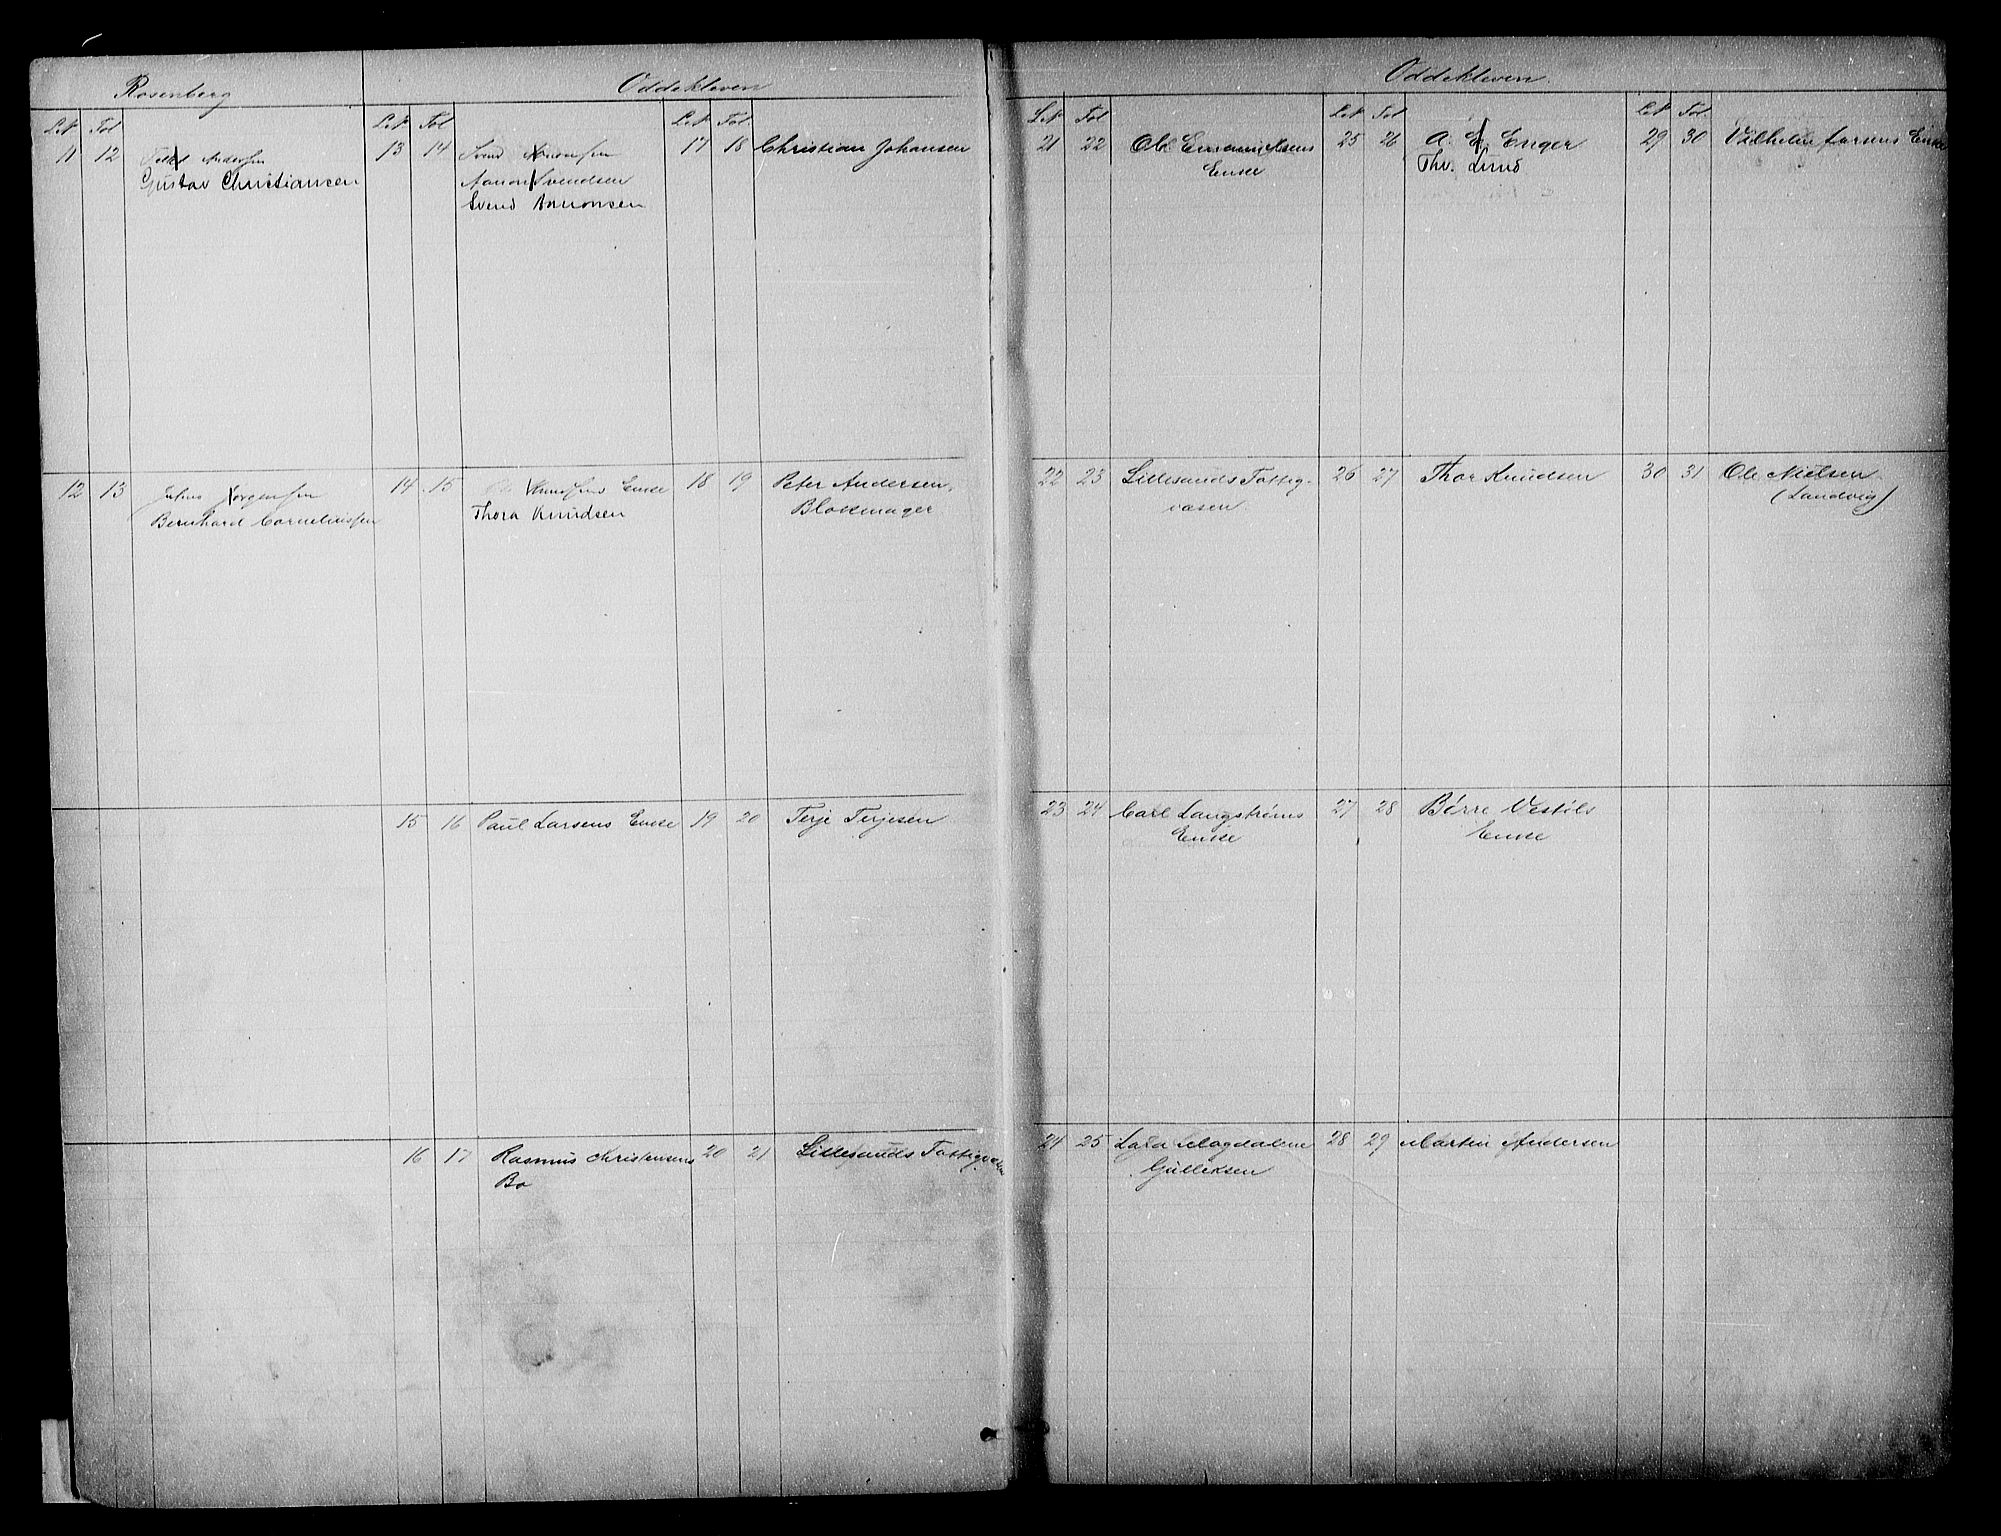 Rosenberg
Oddekleven
L.N. Fol
11 12 Andersen
Gustav Christiansen
12 13 Julius Jørgensen
Bernhard Corneliussen
L.N. Fol
13 14 Svend Aanonsen
Aanon Svendsen
Svend Aanonsen
14 15 Knudsens Enke
Thora Knudsen
15 16 Paul Larsens Enke
16 17 Rasmus Christensens
Bo
L.N. Fol.
17 18 Christian Johansen
18 19 Peter Andersen,
Blokmager
19 20 Terje Terjesen
20 21 Lillesands Fattigvæsen
Oddekleven.
L.N. Fol
21 22 Ole Emanuelsens
Enke
22 23 Lillesands Fattig-
væsen.
23 24 Carl Langstrøms
Enke
24 25 Lara Magdalene
Gulleksen
L.N. Fol
25 26 A. E. Enger
Thv. Lund
26 27 Thor Knudsen
27 28 Børre Vestøls
Enke
28 29 Martin Andersen
L.N. Fol.
29 30 Vilhelm Larsens Enke
30 31 Ole Nielsen
(Landvig)